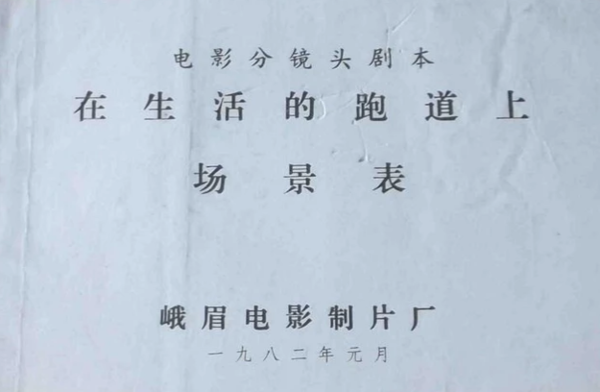 电影分镜头剧本
在生活的跑道上
场景表
峨眉电影制片厂
一九八二年元月